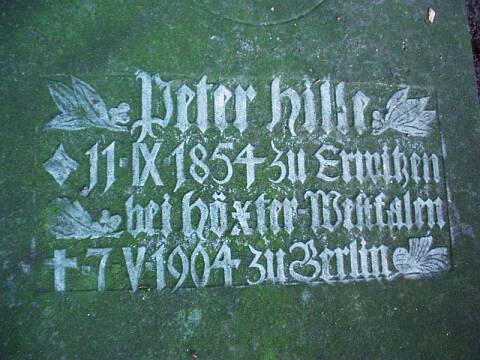 Peter Hille
11·IX 1854 zu Erwitzen
bei Höxter-Westfalen
† 7·V·1904 zu Berlin